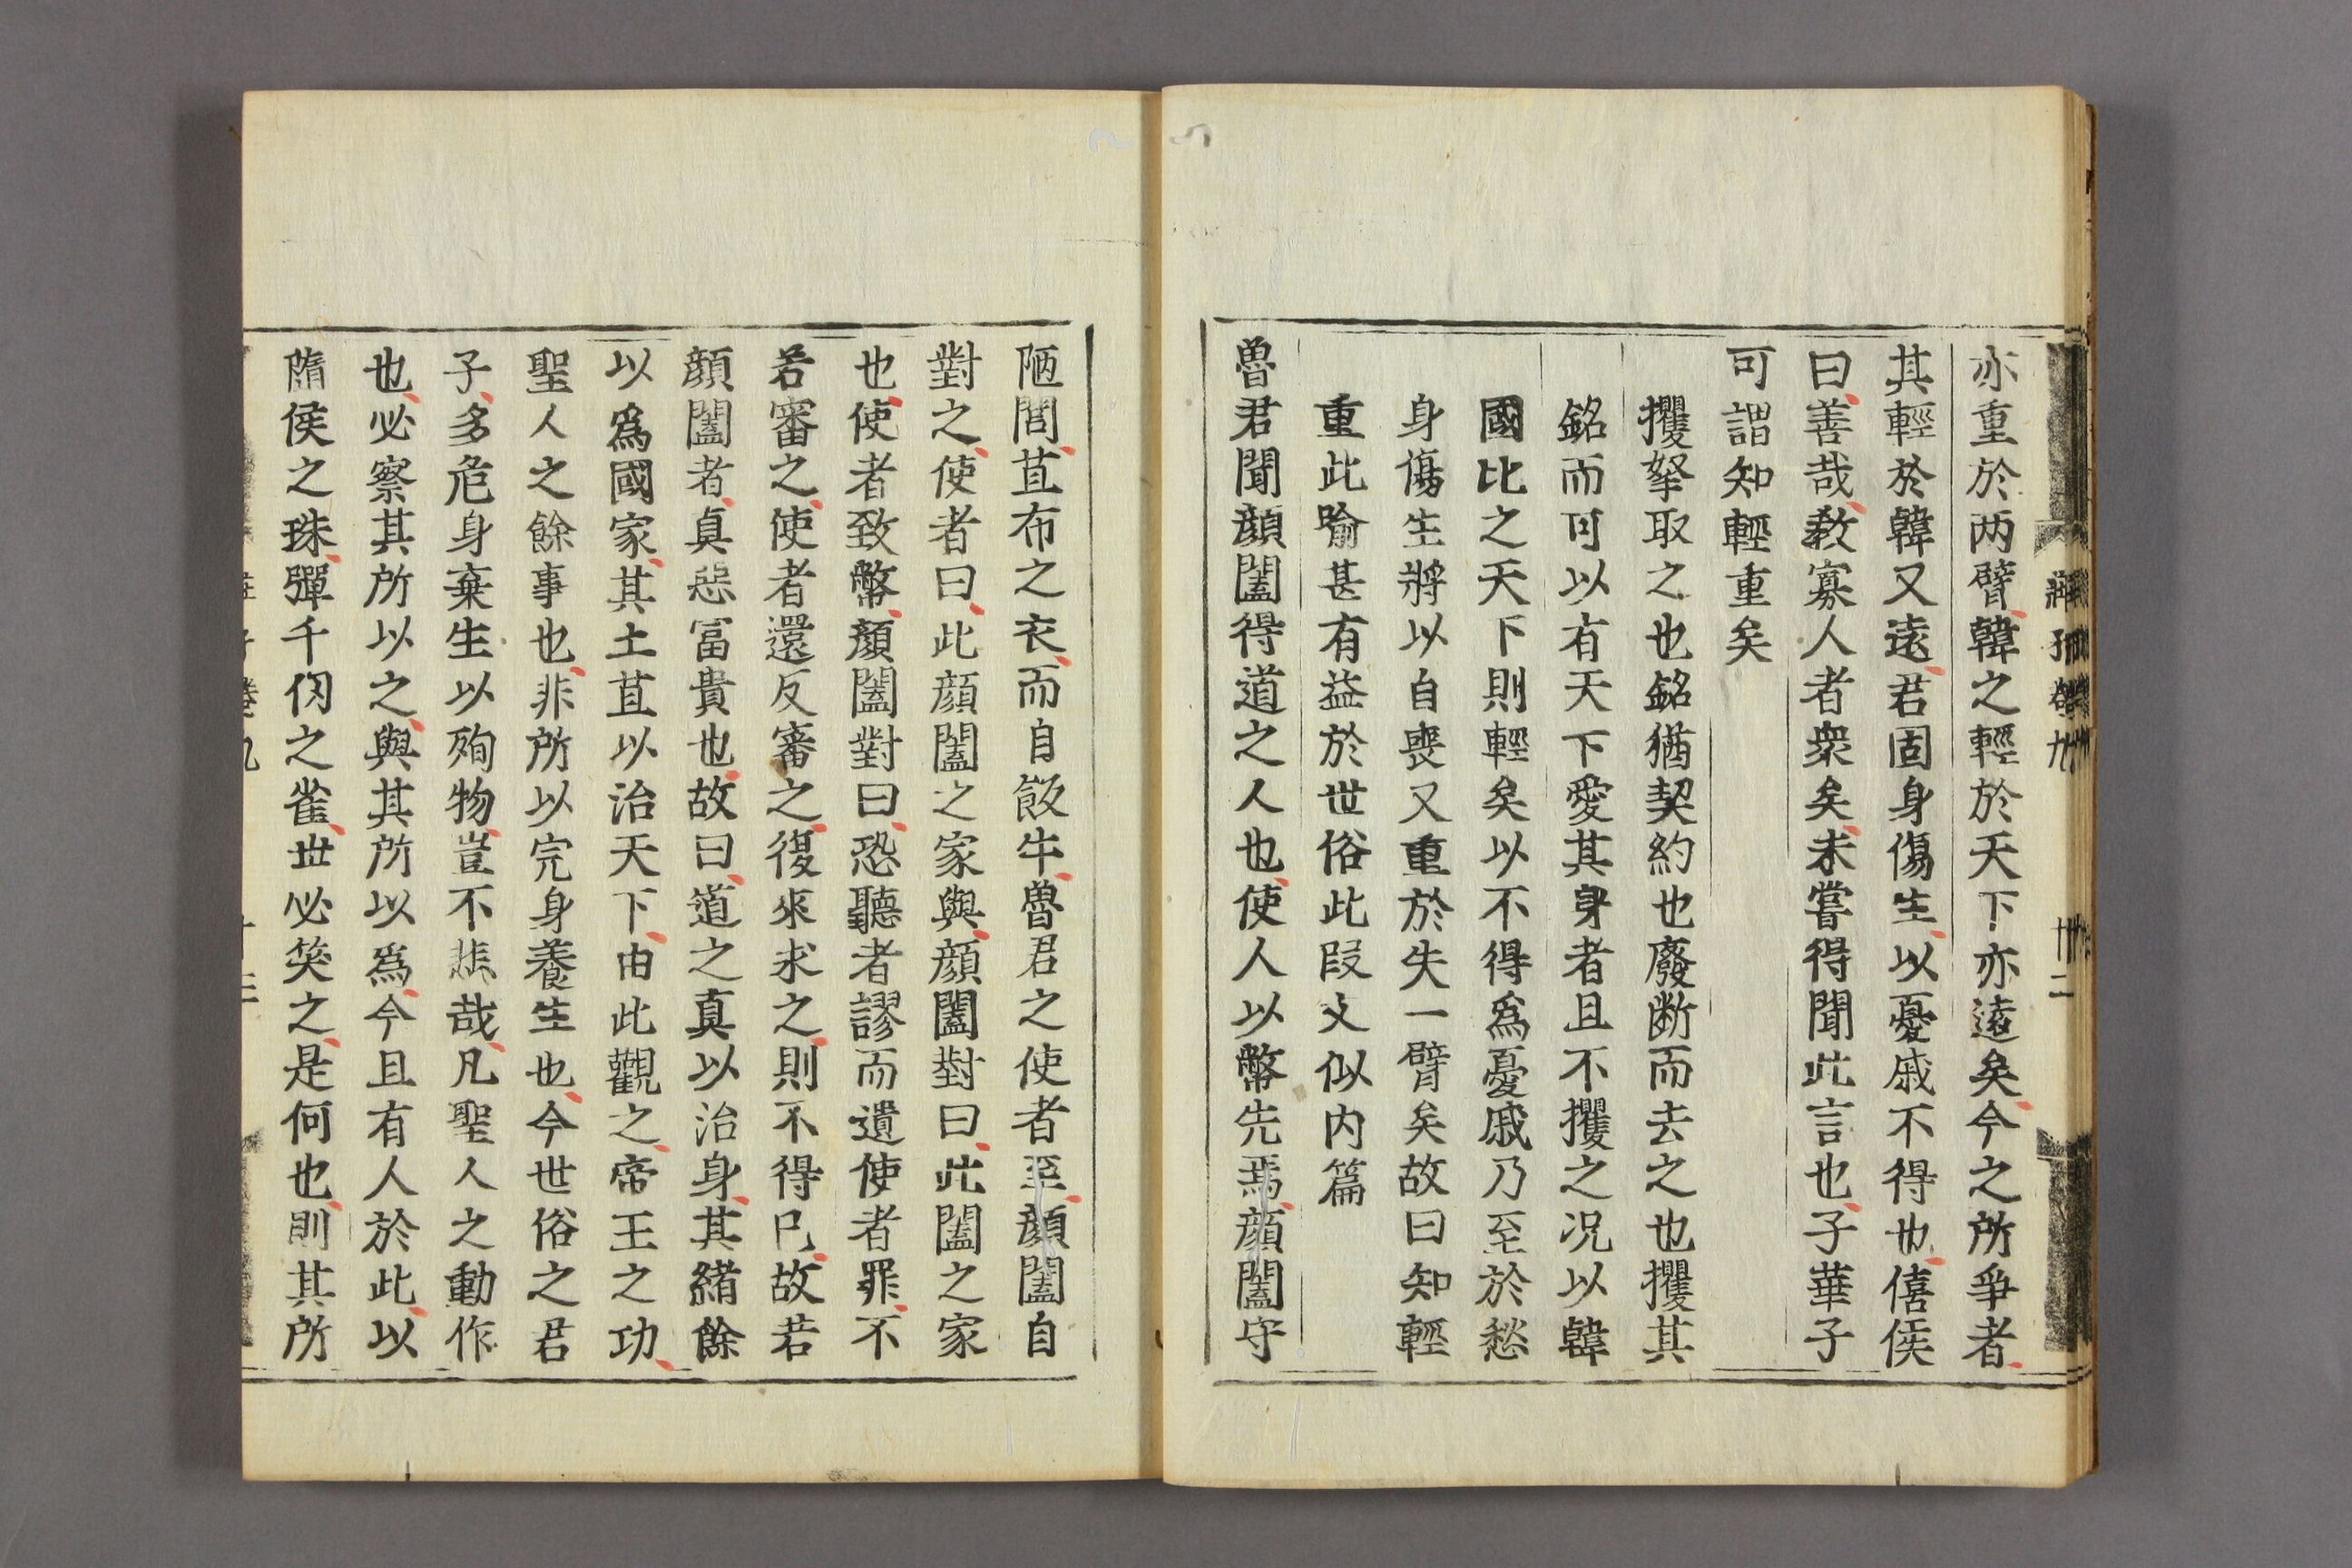 亦重於两臂韓之輕於天下亦遠矣今之所爭者
其輕於韓又遠君固身傷生以憂戚不得也僖侯
曰善哉教寡人者衆矣未嘗得聞此言也子華子
可謂知輕重矣
攫拏取之也銘猶契約也廢断而去之也攫其
銘而可以有天下愛其身者且不攫之况以韓
國比之天下則輕矣以不得爲憂戚乃至於愁
身傷生將以自喪又重於失一臂矣故曰知輕
重此喻甚有益於世俗此段文似内篇
魯君聞顔闔得道之人也使人以幣先焉顔闔守
陋閭苴布之衣而自飯牛魯君之使者至顔闔自
對之使者曰此顔闔之家與顔闔對曰此闔之家
也使者致幣顔闔對曰恐聽者謬而遺使者罪不
若審之使者還反審之復來求之則不得已故若
顔闔者真惡冨貴也故曰道之真以治身其緒餘
以爲國家其土苴以治天下由此觀之帝王之功
聖人之餘事也非所以完身養生也今世俗之君
子多危身棄生以殉物豈不悲哉凡聖人之動作
也必察其所以之與其所以爲今且有人於此以
隋侯之珠彈千仞之雀世必笑之是何也則其所